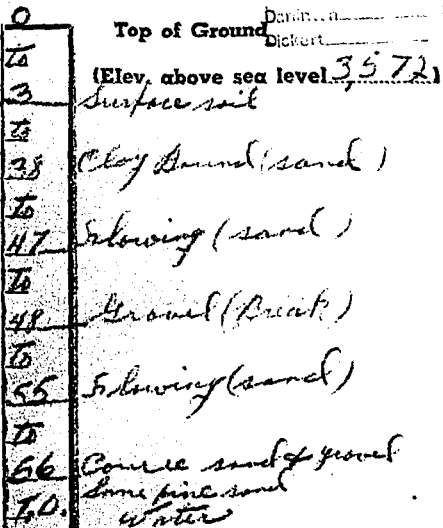 0
Top of Ground
Dickert
to
(Elev. above sea level 3,572)
3 Surface soil
to
38 Clay Bound (sand)
to
47 Flowing (sand)
to
48 Gravel (Break)
to
55 Flowing (sand)
to
66 Course sand & gravel
Some fine sand
T.D. Water